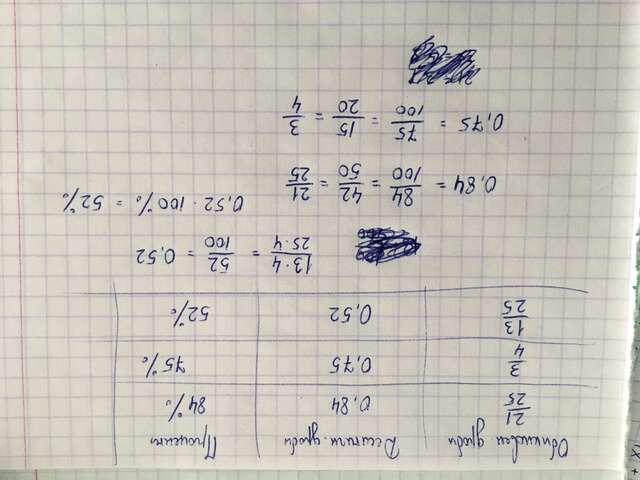 Обыкновен дроби Десятичн. дроби Проценты
21/25 0,84 84%
3/4 0,75 75%
13/25 0,52 52%
13·4/25·4 = 52/100 = 0,52
0,52 · 100% = 52%
0,84 = 84/100 = 42/50 = 21/25
0,75 = 75/100 = 15/20 = 3/4